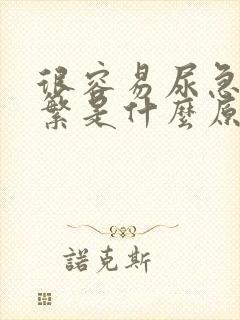 很容易尿急
繁是什麼原
諾克斯